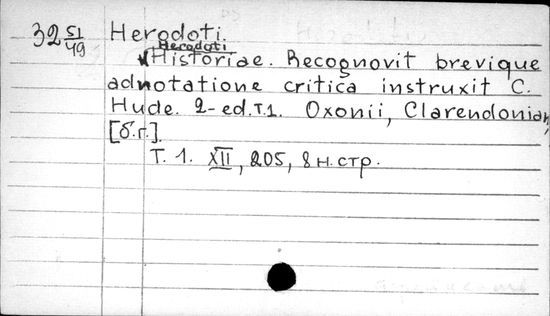 32 51/49 Herodoti.
Herodoti
Historiae. Recognovit brevique
adnotatione critica instruxit C.
Hude. 2-ed. T.1. Oxonii, Clarendonian,
[б.г.].
Т. 1. XII, 205, 8 н. стр.